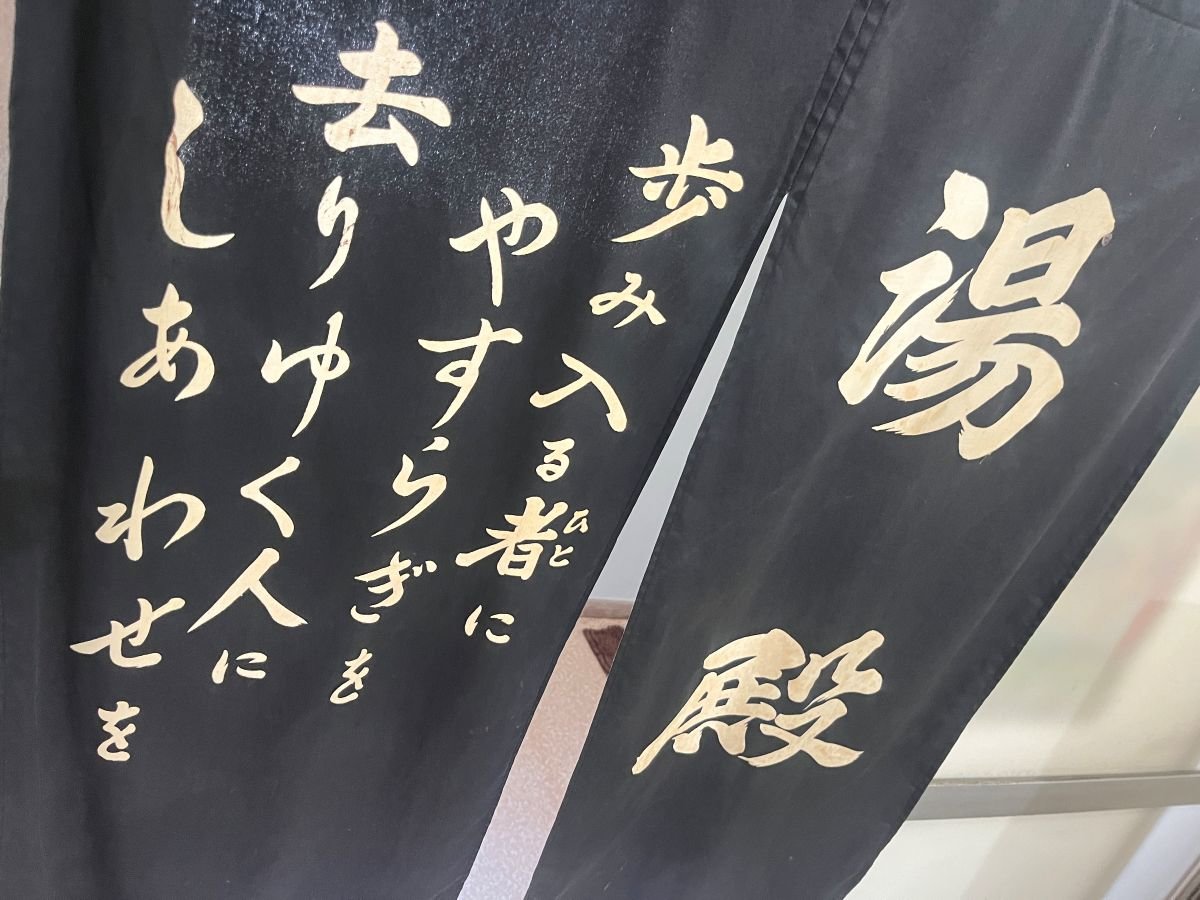 湯殿
歩み入る者に
ひと
やすらぎを
去りゆく人に
しあわせを